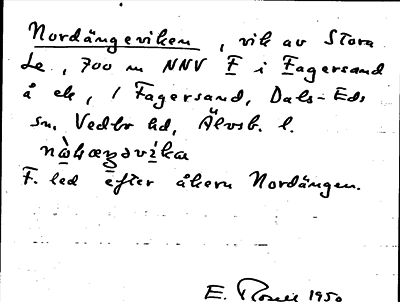 Nordängeviken, vik av Stora
Le, 700 m NNV F i Fagersand
å ek, 1 Fagersand, Dals-Eds
sn, Vedbo hd, Älvsb. l.
F. led efter åkern Nordängen.
E. 1950